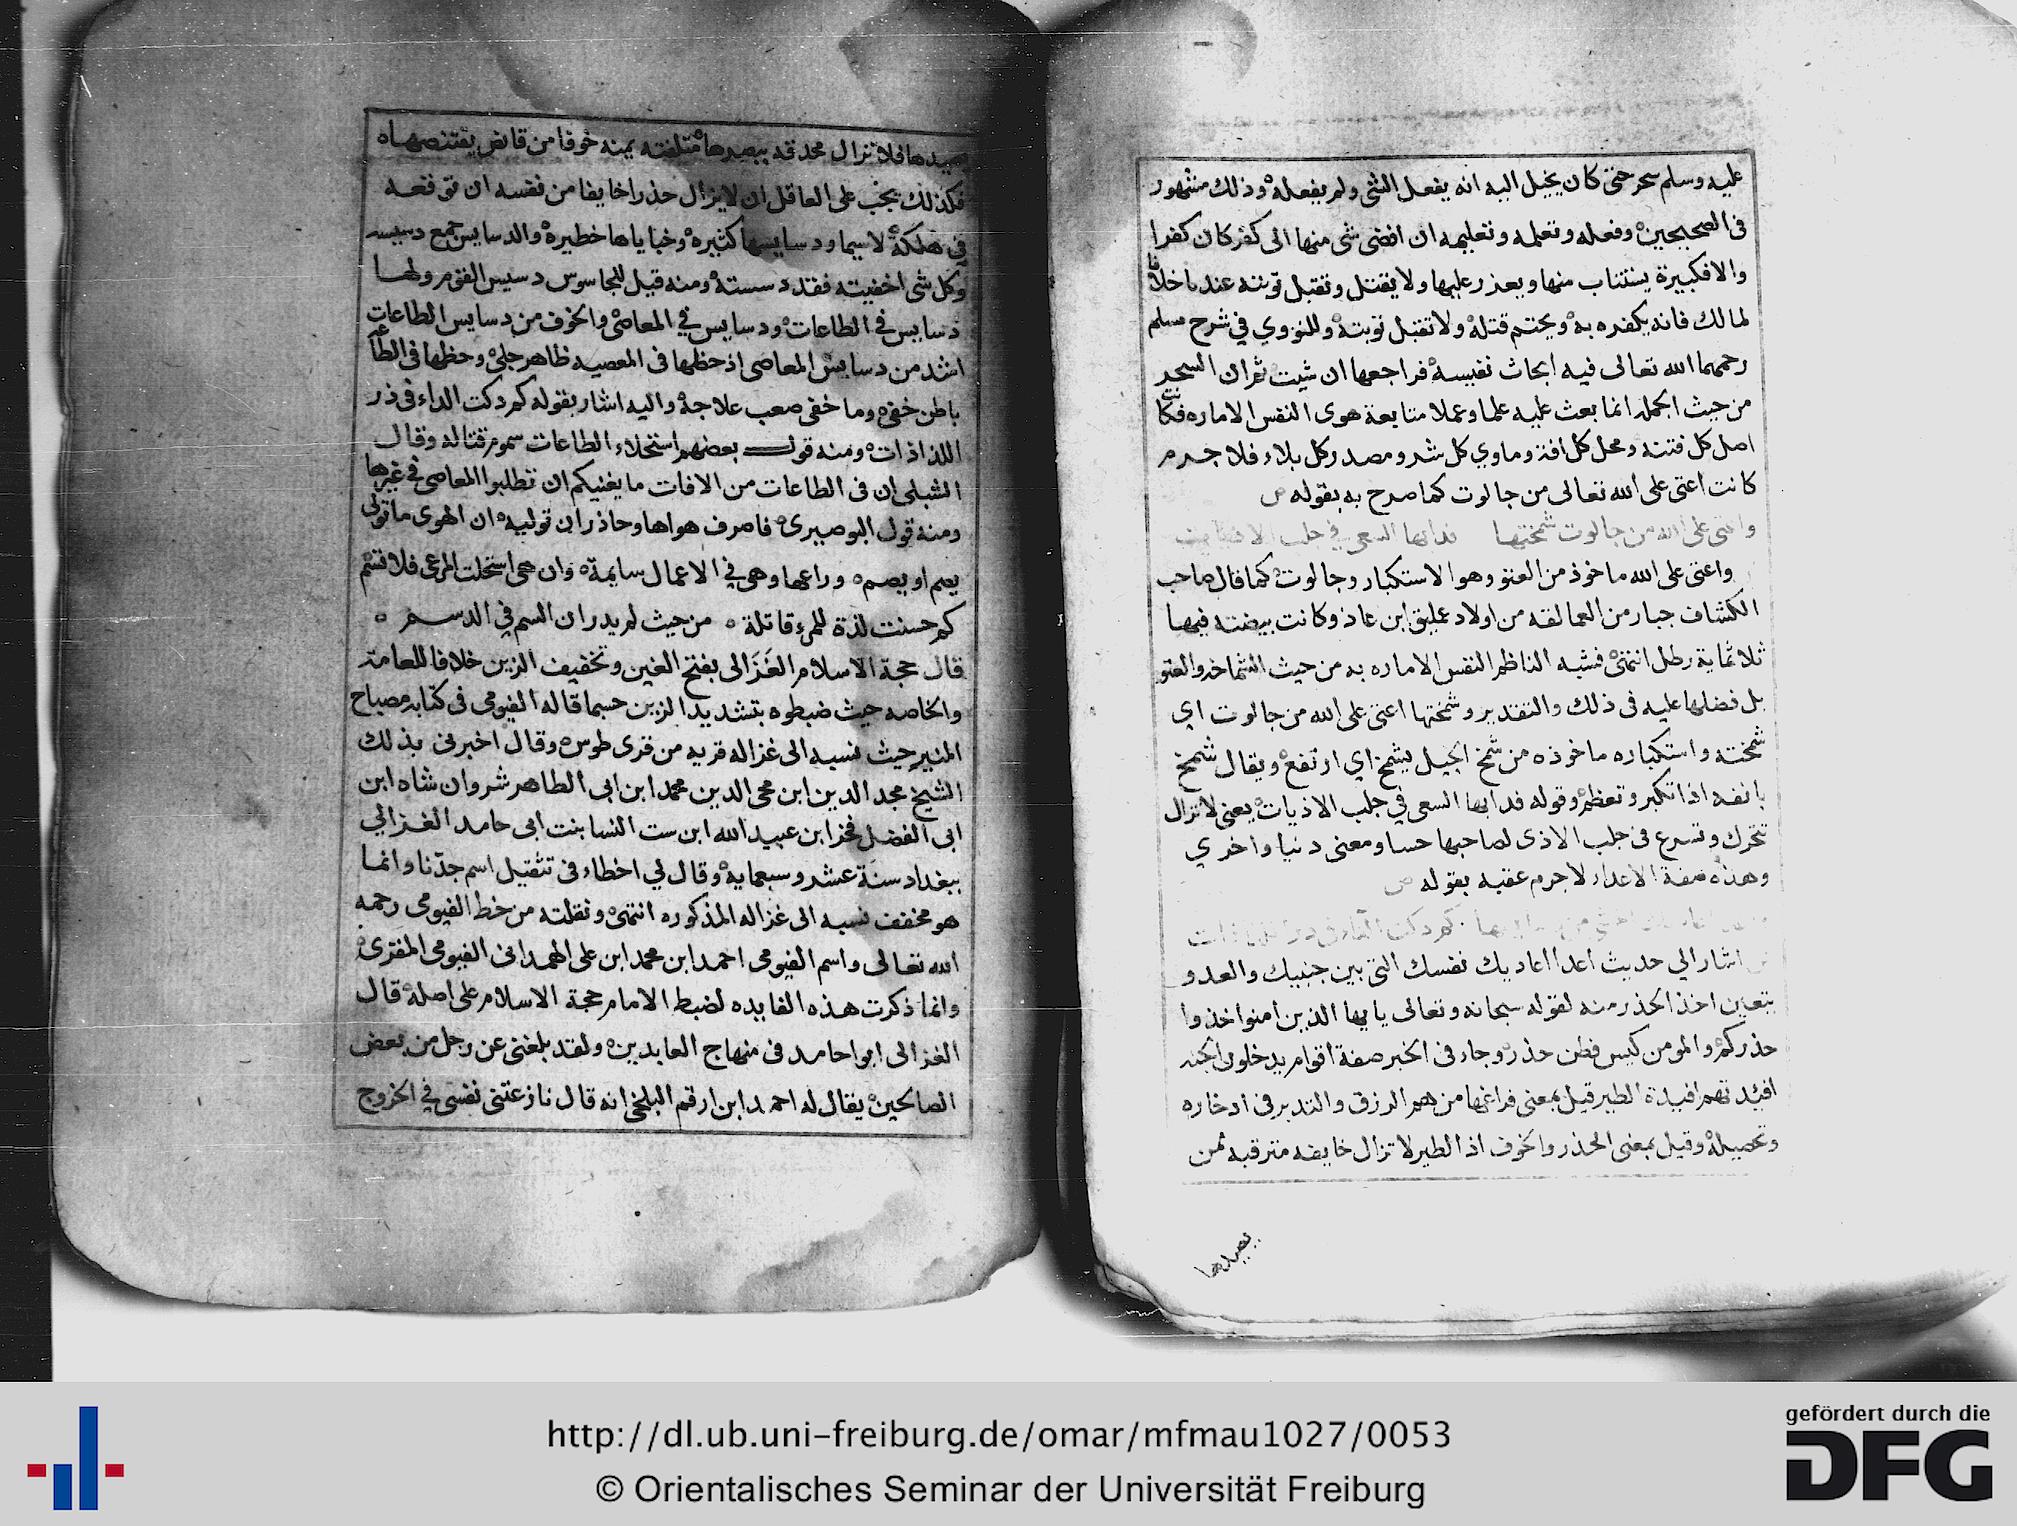 عليه وسلم سحر حتى كان يخيل اليه انه يفعل الشى ولم يفعله وذلك مشهور
فى الصحيحين وفعله وتعلمه وتعليمه ان افضى شى منها الى كفر كان كفرا
والا فكبيرة يستتاب منها ويعذر عليها ولا يقتل وتقبل توبته عندنا خلافا
لمالك فانه يكفره به ويحتم قتله ولا تقبل توبته وللنووي في شرح مسلم
رحمهما الله تعالى فيه ابحاث نفيسة فراجعها ان شيت ثم ان السحر
من حيث الجملة انما يعث عليه علما وعملا متابعة هوى النفس الاماره فكانت
اصل كل فتنة ومحل كل افة وماوي كل شر ومصدر كل بلاء فلا جرم
كانت اعتى على الله تعالى من جالوت كما صرح به بقوله ص
واعتى على الله من جالوت شمختها فدابها السعى في جلب الاذيات
واعتى على الله ماخوذ من العتو وهو الاستكبار وجالوت كما قال صاحب
الكشاف جبار من العمالقه من اولاد عمليق ابن عاد وكانت بيضته فيها
ثلاثماية رطل انتهى فشبه الناظم النفس الاماره به من حيث الشماخه والعتو
بل فضلها عليه فى ذلك والتقدير وشمختها اعتى على الله من جالوت اي
شمخته واستكباره ماخوذه من شمخ الجبل يشمخ اي ارتفع ويقال شمخ
بانفه اذا تكبر وتعظم وقوله فدابها السعى في جلب الاذيات يعنى لا تزال
تتحرك وتسرع فى جلب الاذى لصاحبها حسا ومعنى دنيا واخري
وهذه صفة الاعداء لا جرم عقبه بقوله ص
كم دكت الداء فى ذر اللذاذات
اشار الي حديث اعدا اعاديك نفسك التى بين جنبيك والعدو
يتعين اخذ الحذر منه لقوله سبحانه وتعالى يايها الذين امنوا خذوا
حذركم والمومن كيس فطن حذر وجاء فى الخبر صفة اقوام يدخلون الجنه
افيدتهم افيدة الطير قيل بمعنى فراغها من هم الرزق والتدبر فى ادخاره
وتحصيله وقيل بمعنى الحذر والخوف اذ الطير لا تزال خايفه مترقبه لمن
يصيدها
يصيدها فلا تزال محدقه ببصرها متلفته يمنه خوفا من قانص يقتنصها ه
فكذلك يجب على العاقل ان لا يزال حذرا خايفا من نفسه ان توقعه
في هلكة لا سيما ودسايسها كثيره وخباياها خطيره والدسايس جمع دسيسه
وكل شى اخفيته فقد دسسته ومنه قيل للجاسوس دسيس القوم ولها
دسايس فى الطاعات ودسايس في المعاصى والخوف من دسايس الطاعات
اشد من دسايس المعاصى اذ حظها فى المعصيه ظاهر جلى وحظها فى الطاعه
باطن خفى وما خفى صعب علاجه واليه اشار بقوله كم دكت الداء فى ذر
اللذاذات ومنه قول بعضهم استحلاء الطاعات سموم قتاله وقال
الشبلى ان فى الطاعات من الافات ما يغنيكم ان تطلبوا المعاصى في غيرها
ومنه قول البوصيرى فاصرف هواها وحاذر ان توليه ان الهوى ما تولى
يصم او يصم ه وراعها وهى في الاعمال سايمة ه وان هى استحلت المرعى فلا تسم
كم حسنت لذة للمرء قاتلة ه من حيث لم يدر ان السم في الدسم ه
قال حجة الاسلام الغَزَالى بفتح الغين وتخفيف الزين خلافا للعامة
والخاصه حيث ضبطوه بتشديد الزين حسبما قاله الفيومى فى كتابه مصباح
المنير حيث نسبه الى غزاله قريه من قرى طوس ه وقال اخبرنى بذلك
الشيخ مجد الدين ابن محى الدين محمد ابن ابى الطاهر شروان شاه ابن
ابى الفضل فخر ابن عبيد الله ابن ست النسا بنت ابى حامد الغزالي
ببغداد سنة عشر وسبعمايه وقال لي اخطاء فى تثقيل اسم جدنا وانما
هو مخفف نسبه الى غزاله المذكوره انتهى ونقلته من خط الفيومى رحمه
الله تعالى واسم الفيومى احمد ابن محمد ابن على الهمدانى الفيومى المقرى
وانما ذكرت هذه الفايده لضبط الامام حجة الاسلام على اصله قال
الغزالى ابوا حامد فى منهاج العابدين ولقد بلغنى عن رجل من بعض
الصالحين يقال له احمد ابن ارقم البلخى انه قال نازعتنى نفسى في الخروج
http://dl.ub.uni-freiburg.de/omar/mfmau1027/0053
© Orientalisches Seminar der Universität Freiburg
gefördert durch die
DFG